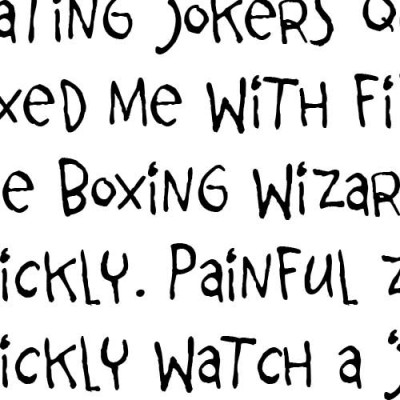 ATiNG JOKERS Q
xED ME WiTH Fi
E BOXiNG WiZAR
iCKLY. PAiNFUL Z
iCKLY WATCH A "J